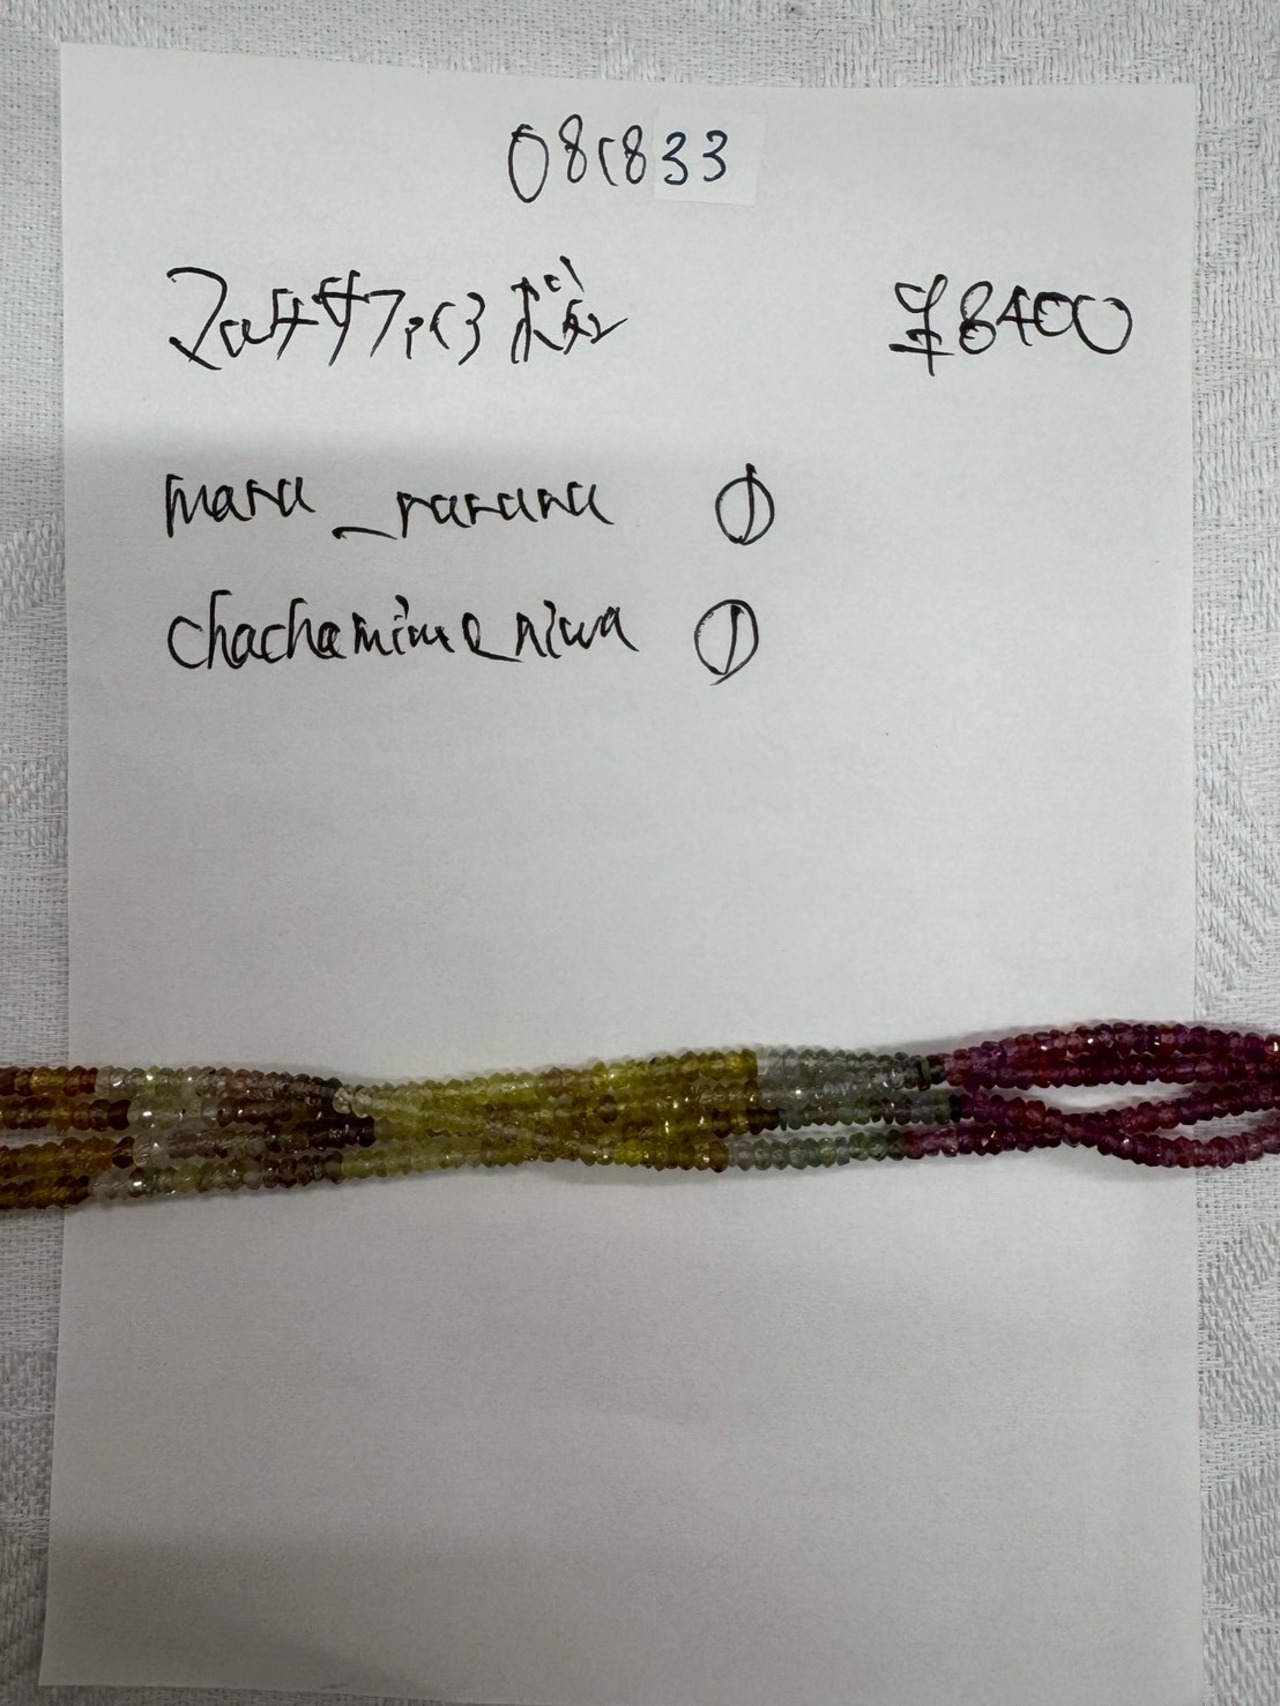 081833
マルチサファイヤ ボタン ¥8400
mana_panana ①
chachamime_niwa ①